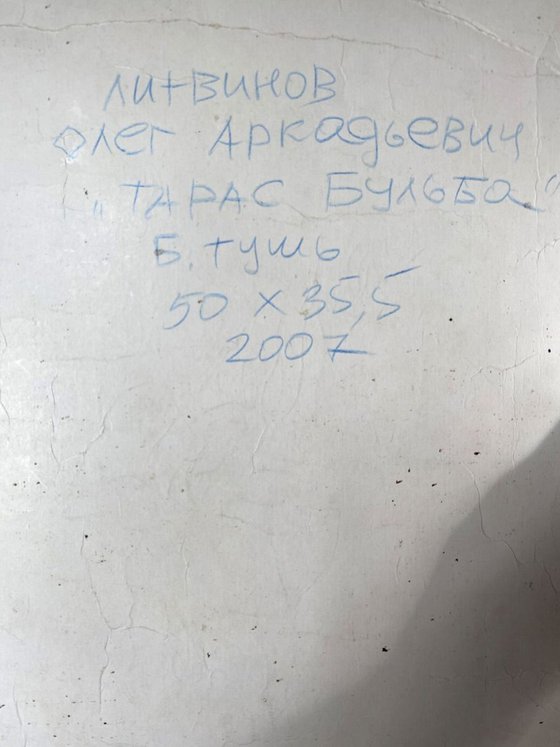 ЛИТВИНОВ
ОЛЕГ АРКАДЬЕВИЧ
„ТАРАС БУЛЬБА“
Б. тушь
50 х 35,5
2007